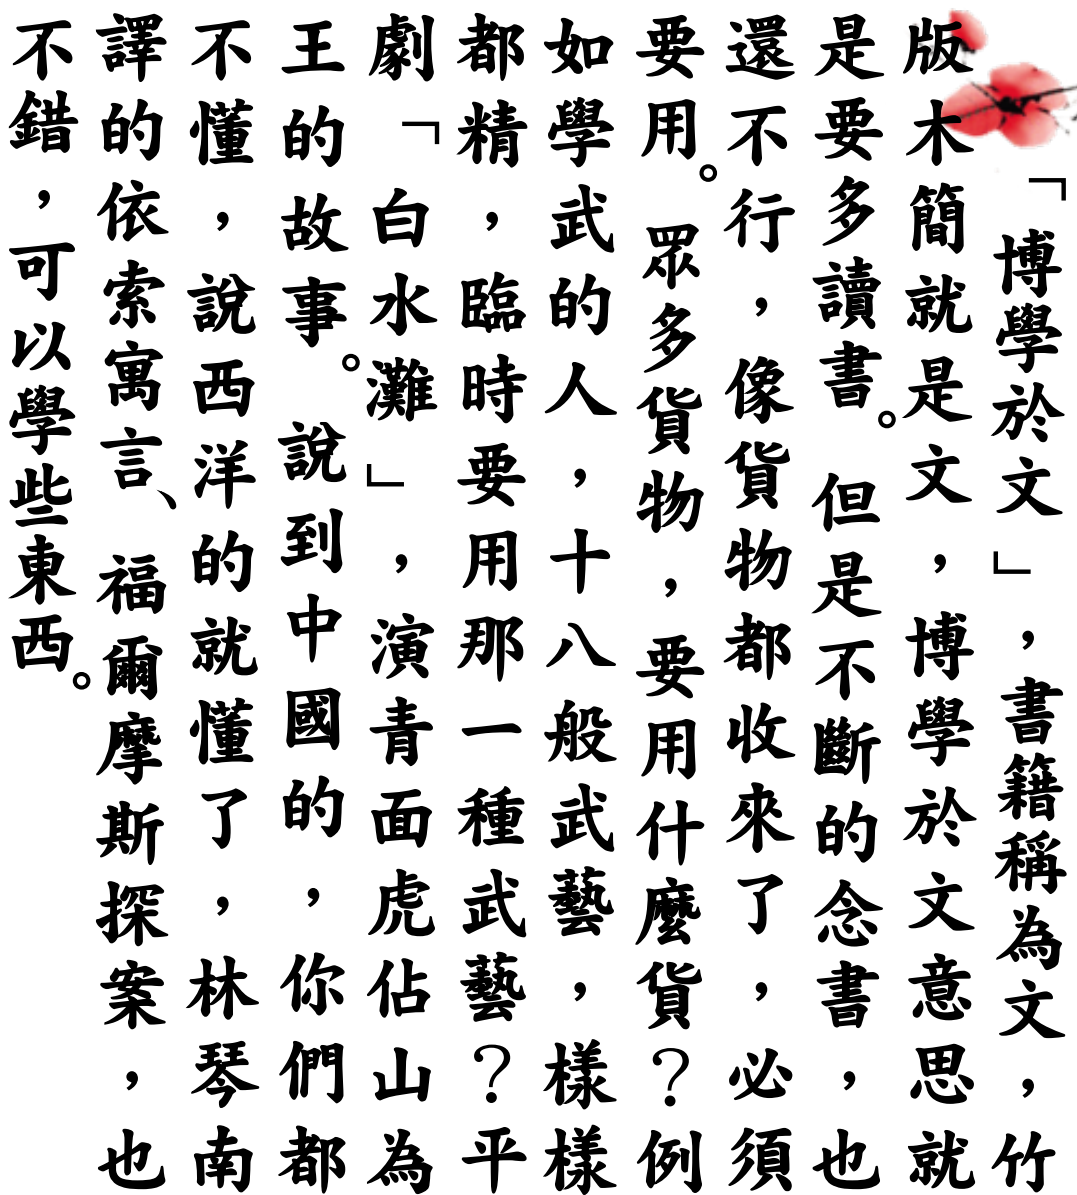 「博學於文」，書籍稱為文，竹
版木簡就是文，博學於文意思就
是要多讀書。但是不斷的念書，也
還不行，像貨物都收來了，必須
要用。眾多貨物，要用什麼貨？例
如學武的人，十八般武藝，樣樣
都精，臨時要用那一種武藝？平
劇「白水灘」，演青面虎佔山為
王的故事。說到中國的，你們都
不懂，說西洋的就懂了，林琴南
譯的依索寓言、福爾摩斯探案，也
不錯，可以學些東西。